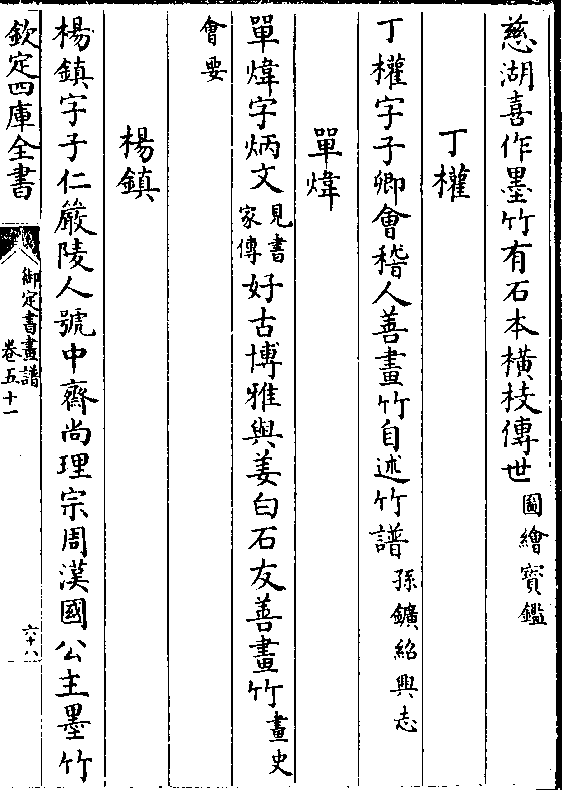 慈湖喜作墨竹有石本橫枝傳世圖繪寶鑑
丁權
丁權字子卿會稽人善畫竹自述竹譜孫鑛紹興志
單煒
單煒字炳文見書家傳好古博雅與姜白石友善畫竹畫史
會要
楊鎮
楊鎮字子仁嚴陵人號中齋尚理宗周漢國公主墨竹
欽定四庫全書
御定書畫譜
卷五十一
六十八